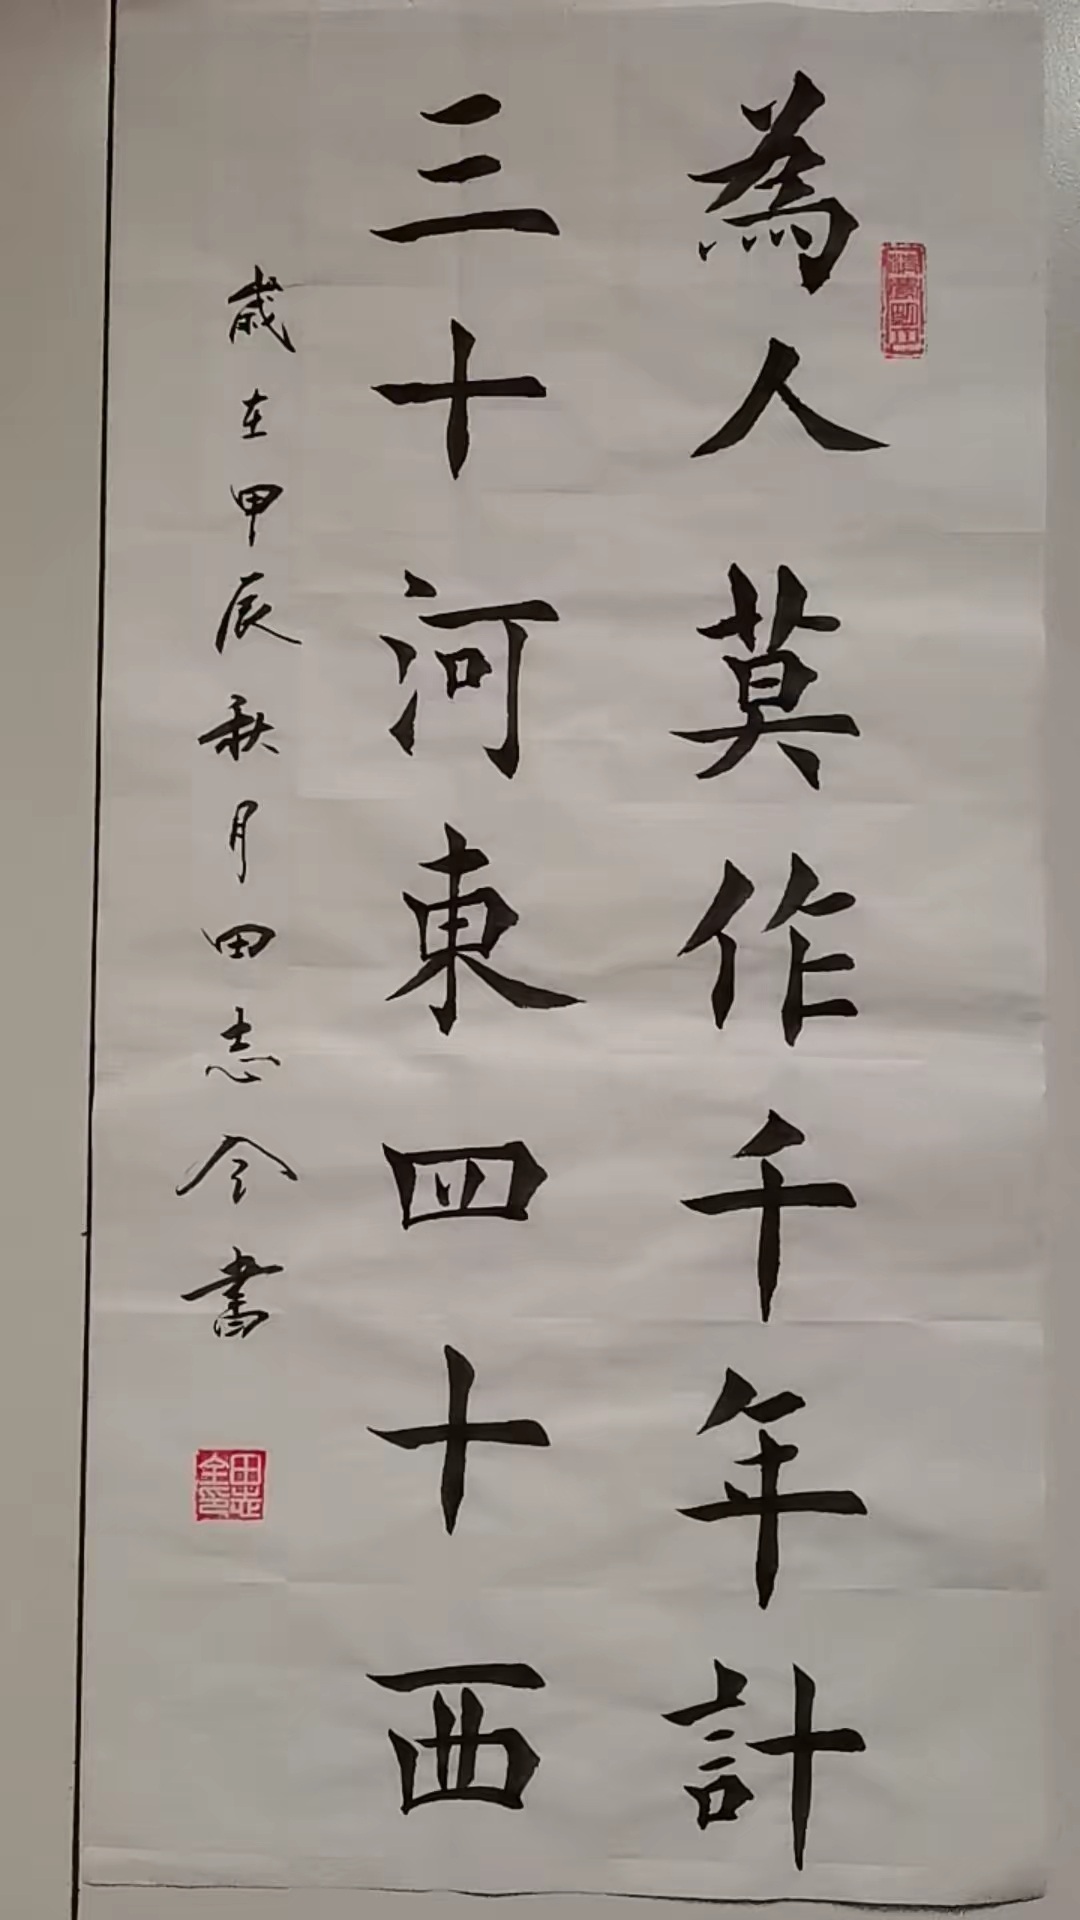 為人莫作千年計
三十河東四十西
歲在甲辰秋月田志全書
田志全印